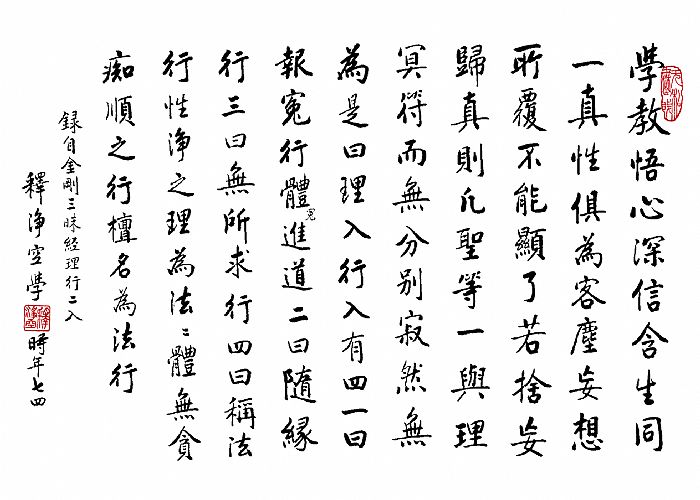 學教悟心深信含生同
一真性俱為客塵妄想
所覆不能顯了若捨妄
歸真則凡聖等一與理
冥符而無分別寂然無
為是曰理入行入有四一曰
報冤行體冤進道二曰隨緣
行三曰無所求行四曰稱法
行性淨之理為法〻體無貪
痴順之行檀名為法行
録自金剛三昧經理行二入
釋淨空學 時年七四